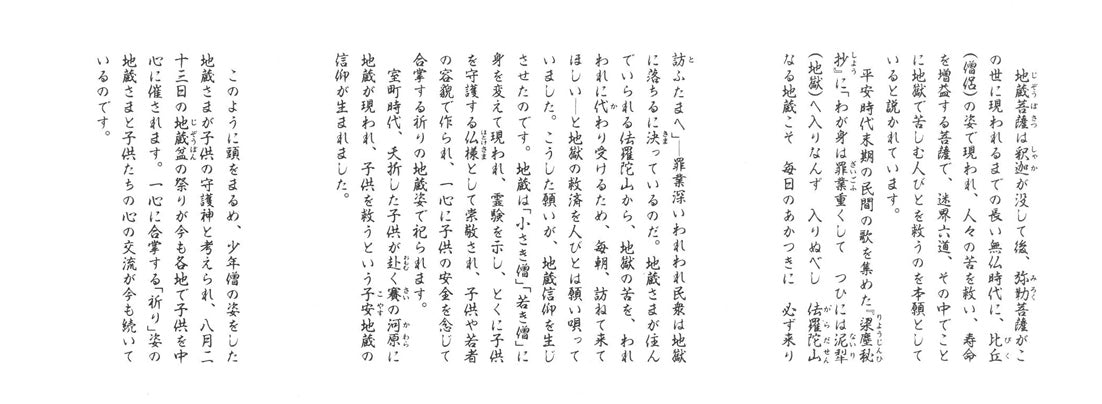 地蔵菩薩は釈迦が没して後、弥勒菩薩がこ
の世に現われるまでの長い無仏時代に、比丘
(僧侶)の姿で現われ、人々の苦を救い、寿命
を増益する菩薩で、迷界六道、その中でこと
に地獄で苦しむ人びとを救うのを本願として
いると説かれています。
平安時代末期の民間の歌を集めた『梁塵秘
抄』に「わが身は罪業重くして　つひには泥犂
(地獄)へ入りなんず　入りぬべし　佉羅陀山
なる地蔵こそ　毎日のあかつきに　必ず来り
訪ふたまへ」―罪業深いわれわれ民衆は地獄
に落ちるに決っているのだ。地蔵さまが住ん
でいられる佉羅陀山から、地獄の苦を、われ
われに代わり受けるため、毎朝、訪ねて来て
ほしい―と地獄の救済を人びとは願い唄って
いました。こうした願いが、地蔵信仰を生じ
させたのです。地蔵は「小さき僧」「若き僧」に
身を変えて現われ、霊験を示し、とくに子供
を守護する仏様として崇敬され、子供や若者
の容貌で作られ、一心に子供の安全を念じて
合掌する祈りの地蔵姿で祀られます。
室町時代、夭折した子供が赴く賽の河原に
地蔵が現われ、子供を救うという子安地蔵の
信仰が生まれました。
このように頭をまるめ、少年僧の姿をした
地蔵さまが子供の守護神と考えられ、八月二
十三日の地蔵盆の祭りが今も各地で子供を中
心に催されます。一心に合掌する「祈り」姿の
地蔵さまと子供たちの心の交流が今も続いて
いるのです。